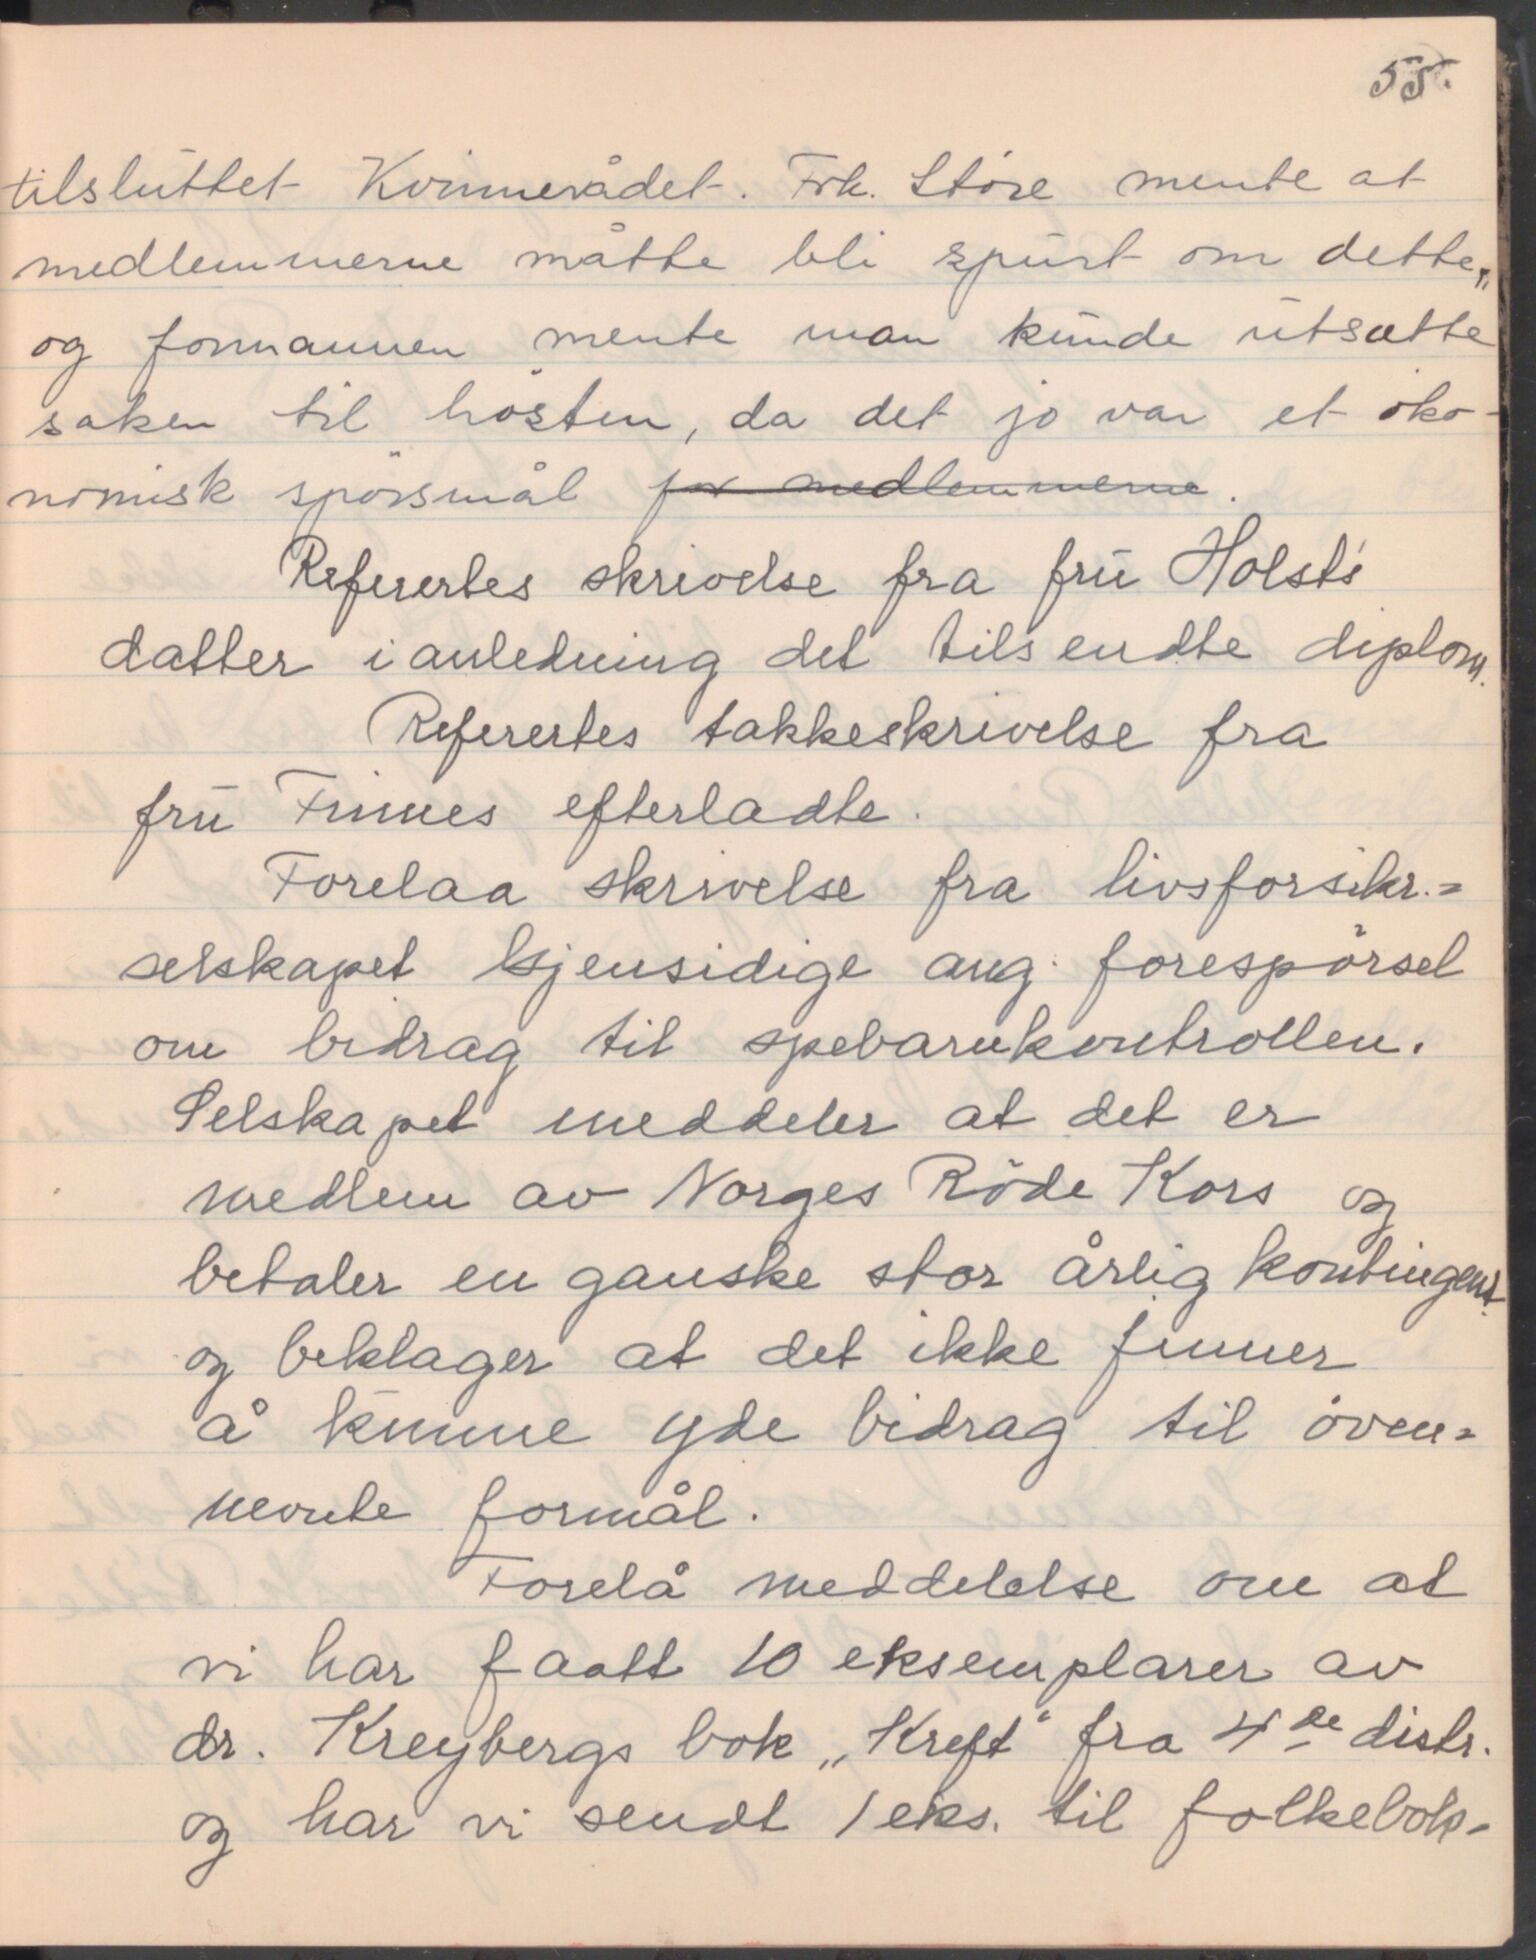 55.
tilsluttet Kvinnerådet. Frk. Störe mente at
medlemmerne måtte bli spurt om dette,
og formannen mente man kunde utsætte
saken til hösten, da det jo var et öko-
nomisk spörsmål for medlemmerne.
Referertes skrivelse fra fru Holsts
datter i anledning det tilsendte diplom.
Referertes takkeskrivelse fra
fru Finnes efterladte.
Forelaa skrivelse fra livsforsikr.=
selskapet Gjensidige ang. forespörsel
om bidrag til spebarnkontrollen.
Selskapet meddeler at det er
medlem av Norges Röde Kors og
betaler en ganske stor årlig kontingent
og beklager at det ikke finner
å kunne yde bidrag til oven=
nevnte formål.
Forelå meddelelse om at
vi har faatt 10 eksemplarer av
dr. Kreybergs bok „Kreft“ fra 4de distr.
og har vi sendt 1 eks. til folkebok-